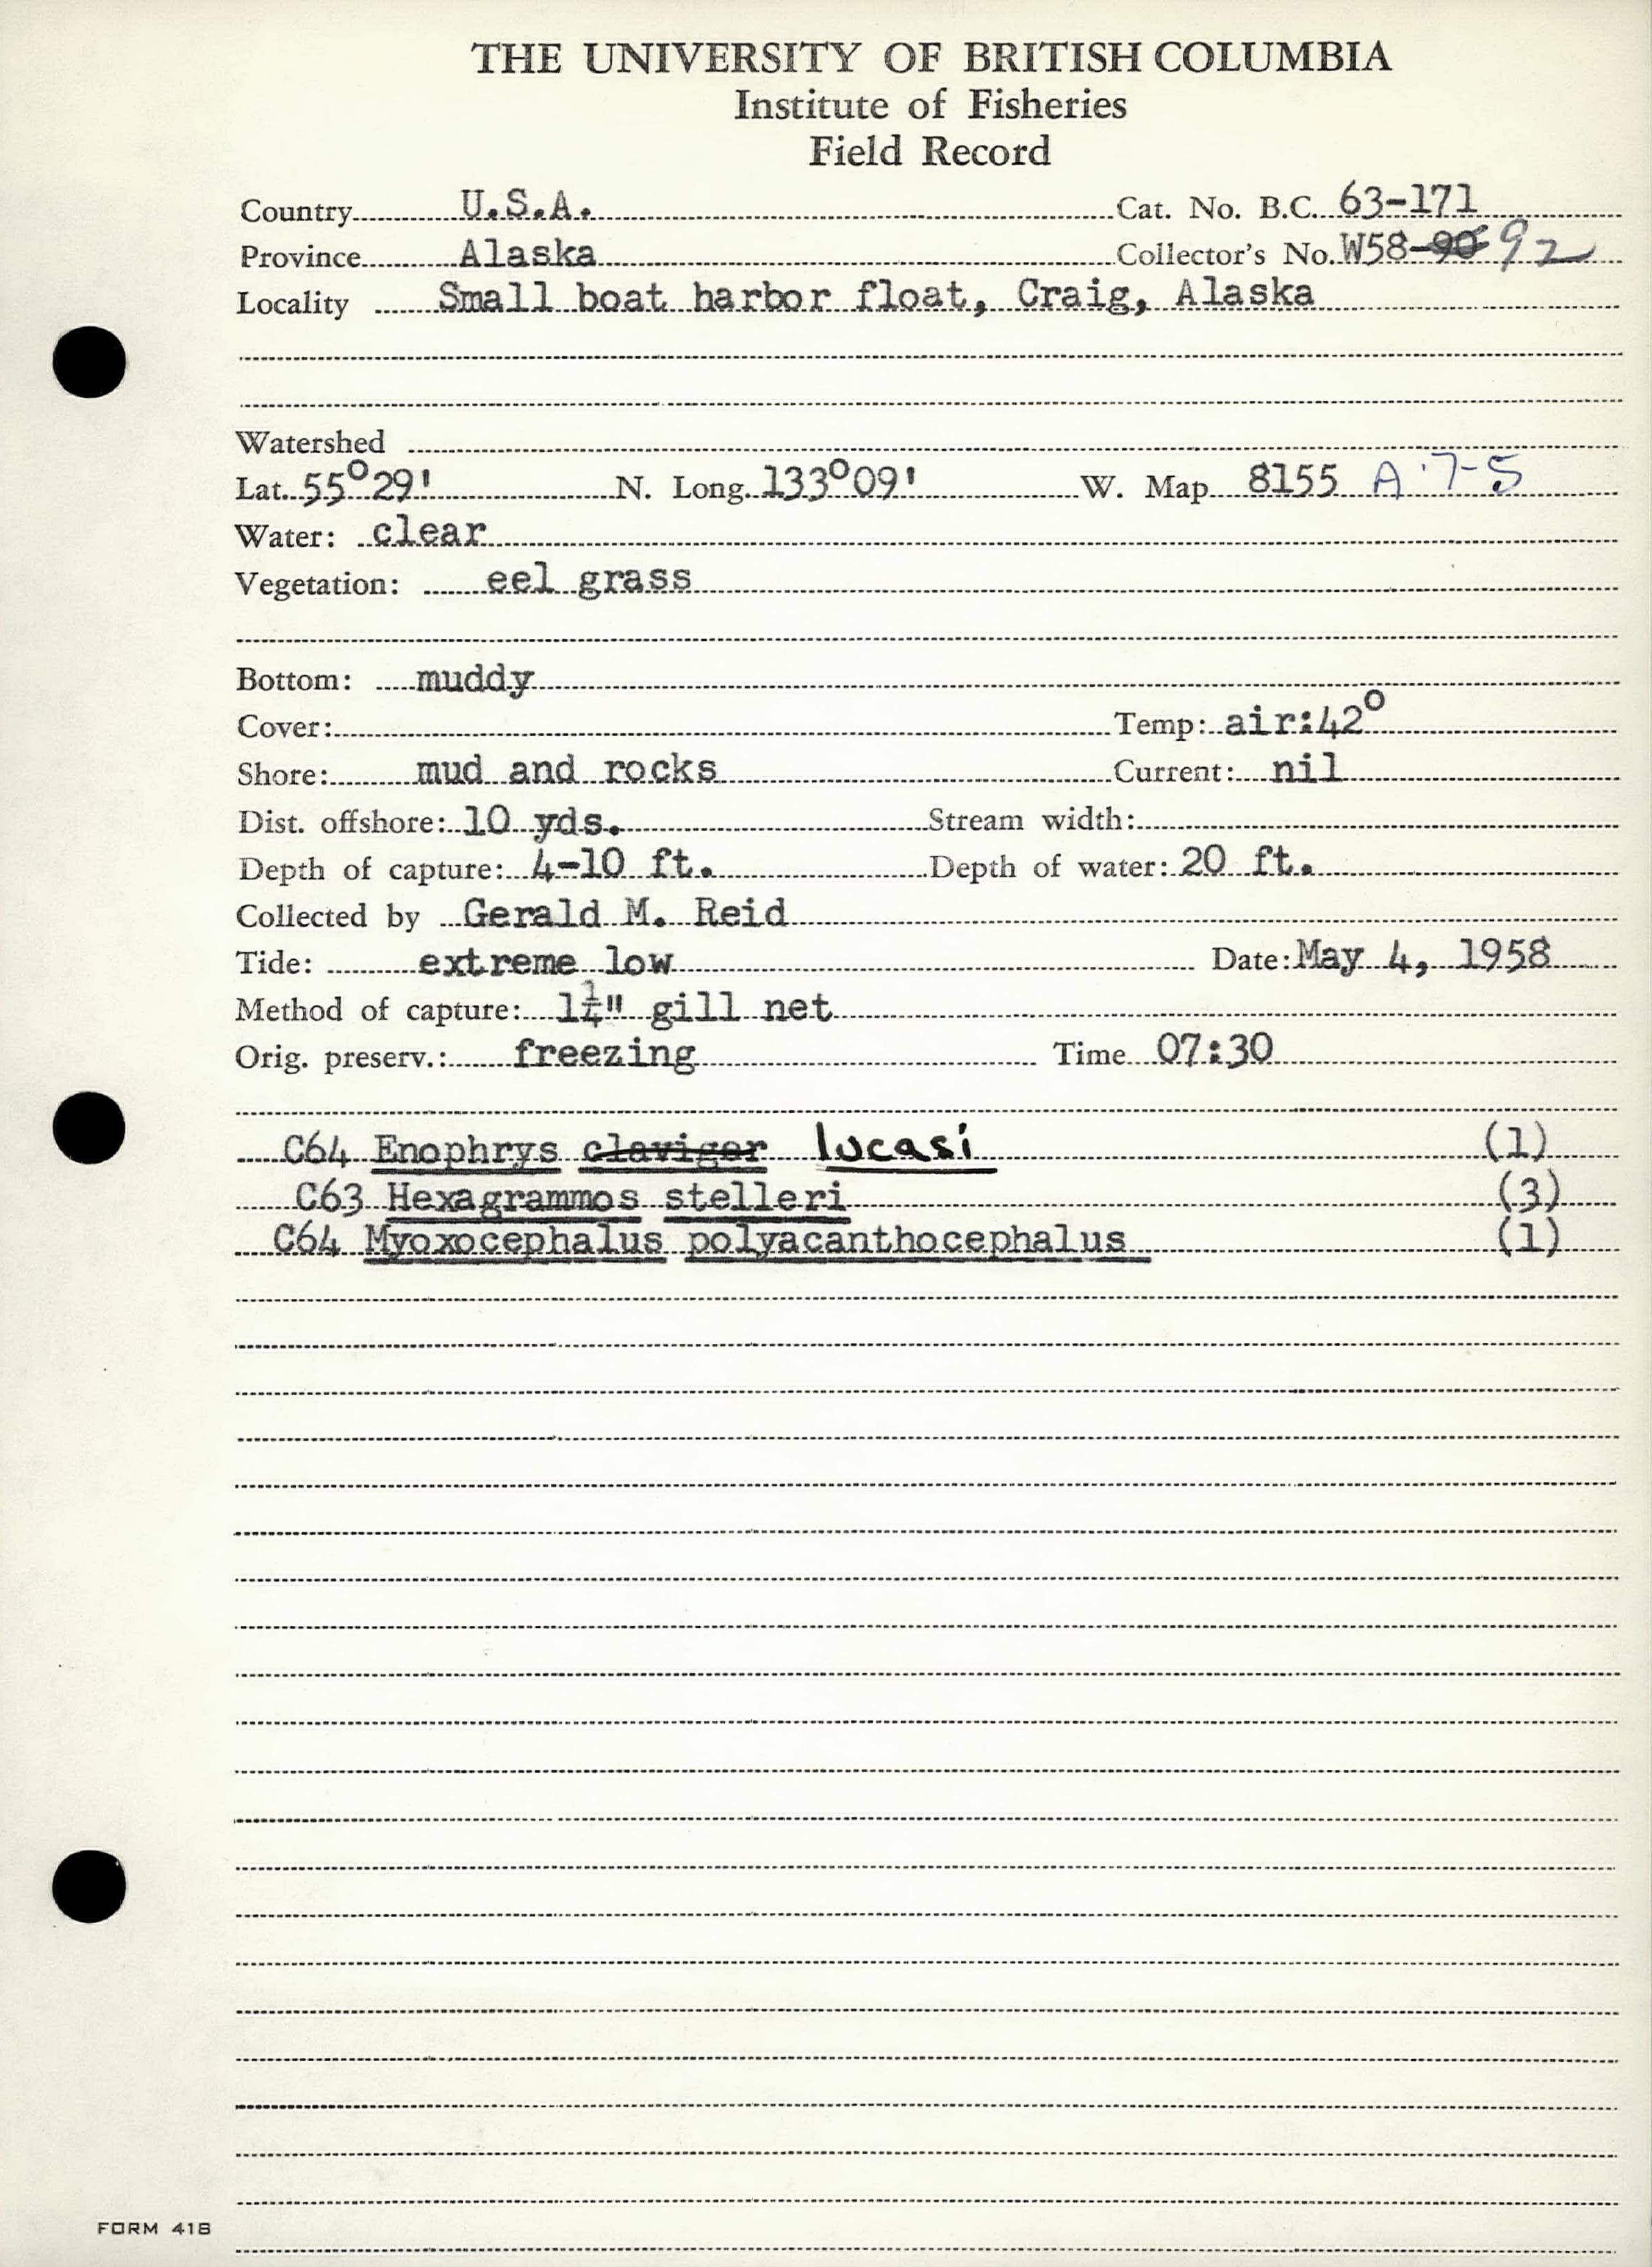 THE UNIVERSITY OF BRITISH COLUMBIA
Institute of Fisheries
Field Record
Country U.S.A. Cat. No. B.C. 63-171
Province Alaska Collector's No. W58-90 92
Locality Small boat harbor float, Craig, Alaska
Watershed
Lat. 55°29' N. Long. 133°09' W. Map 8155 A 7-5
Water: clear
Vegetation: eel grass
Bottom: muddy
Cover: Temp: air:42°
Shore: mud and rocks Current: nil
Dist. offshore: 10 yds. Stream width:
Depth of capture: 4-10 ft. Depth of water: 20 ft.
Collected by Gerald M. Reid
Tide: extreme low Date: May 4, 1958
Method of capture: 1¼" gill net
Orig. preserv.: freezing Time 07:30
C64 Enophrys claviger lucasi (1)
C63 Hexagrammos stelleri (3)
C64 Myoxocephalus polyacanthocephalus (1)
FORM 418